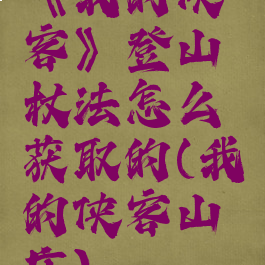 《我的侠
客》登山
杖法怎么
获取的(我
的侠客山